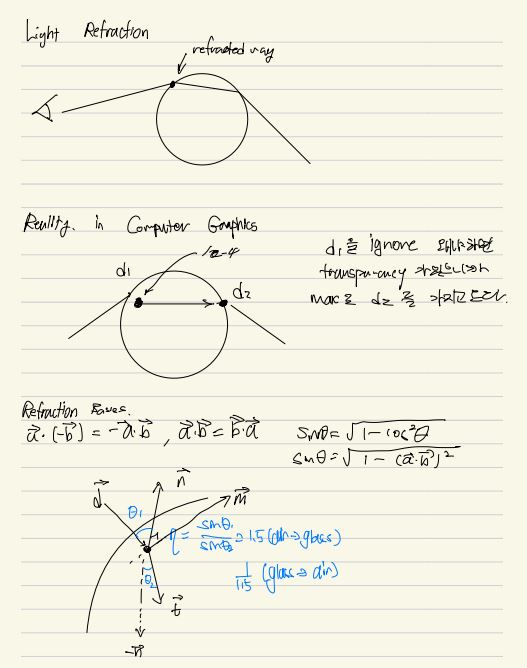 Light Refraction
refracted ray
Reality. in Computer Graphics
1e-4
d₁
d₂
d₁을 ignore
transparency
max로 d₂ 를 가지고
Refraction
a⃗·(-b⃗) = -a⃗·b⃗ , a⃗·b⃗ = b⃗·a⃗
sinθ = √(1-cos²θ)
sinθ = √(1-(a⃗·b⃗)²)
d⃗
n⃗
m⃗
θ₁
η = sinθ₁/sinθ₂ = 1.5 (air→glass)
1/1.5 (glass→air)
θ₂
t⃗
-n⃗